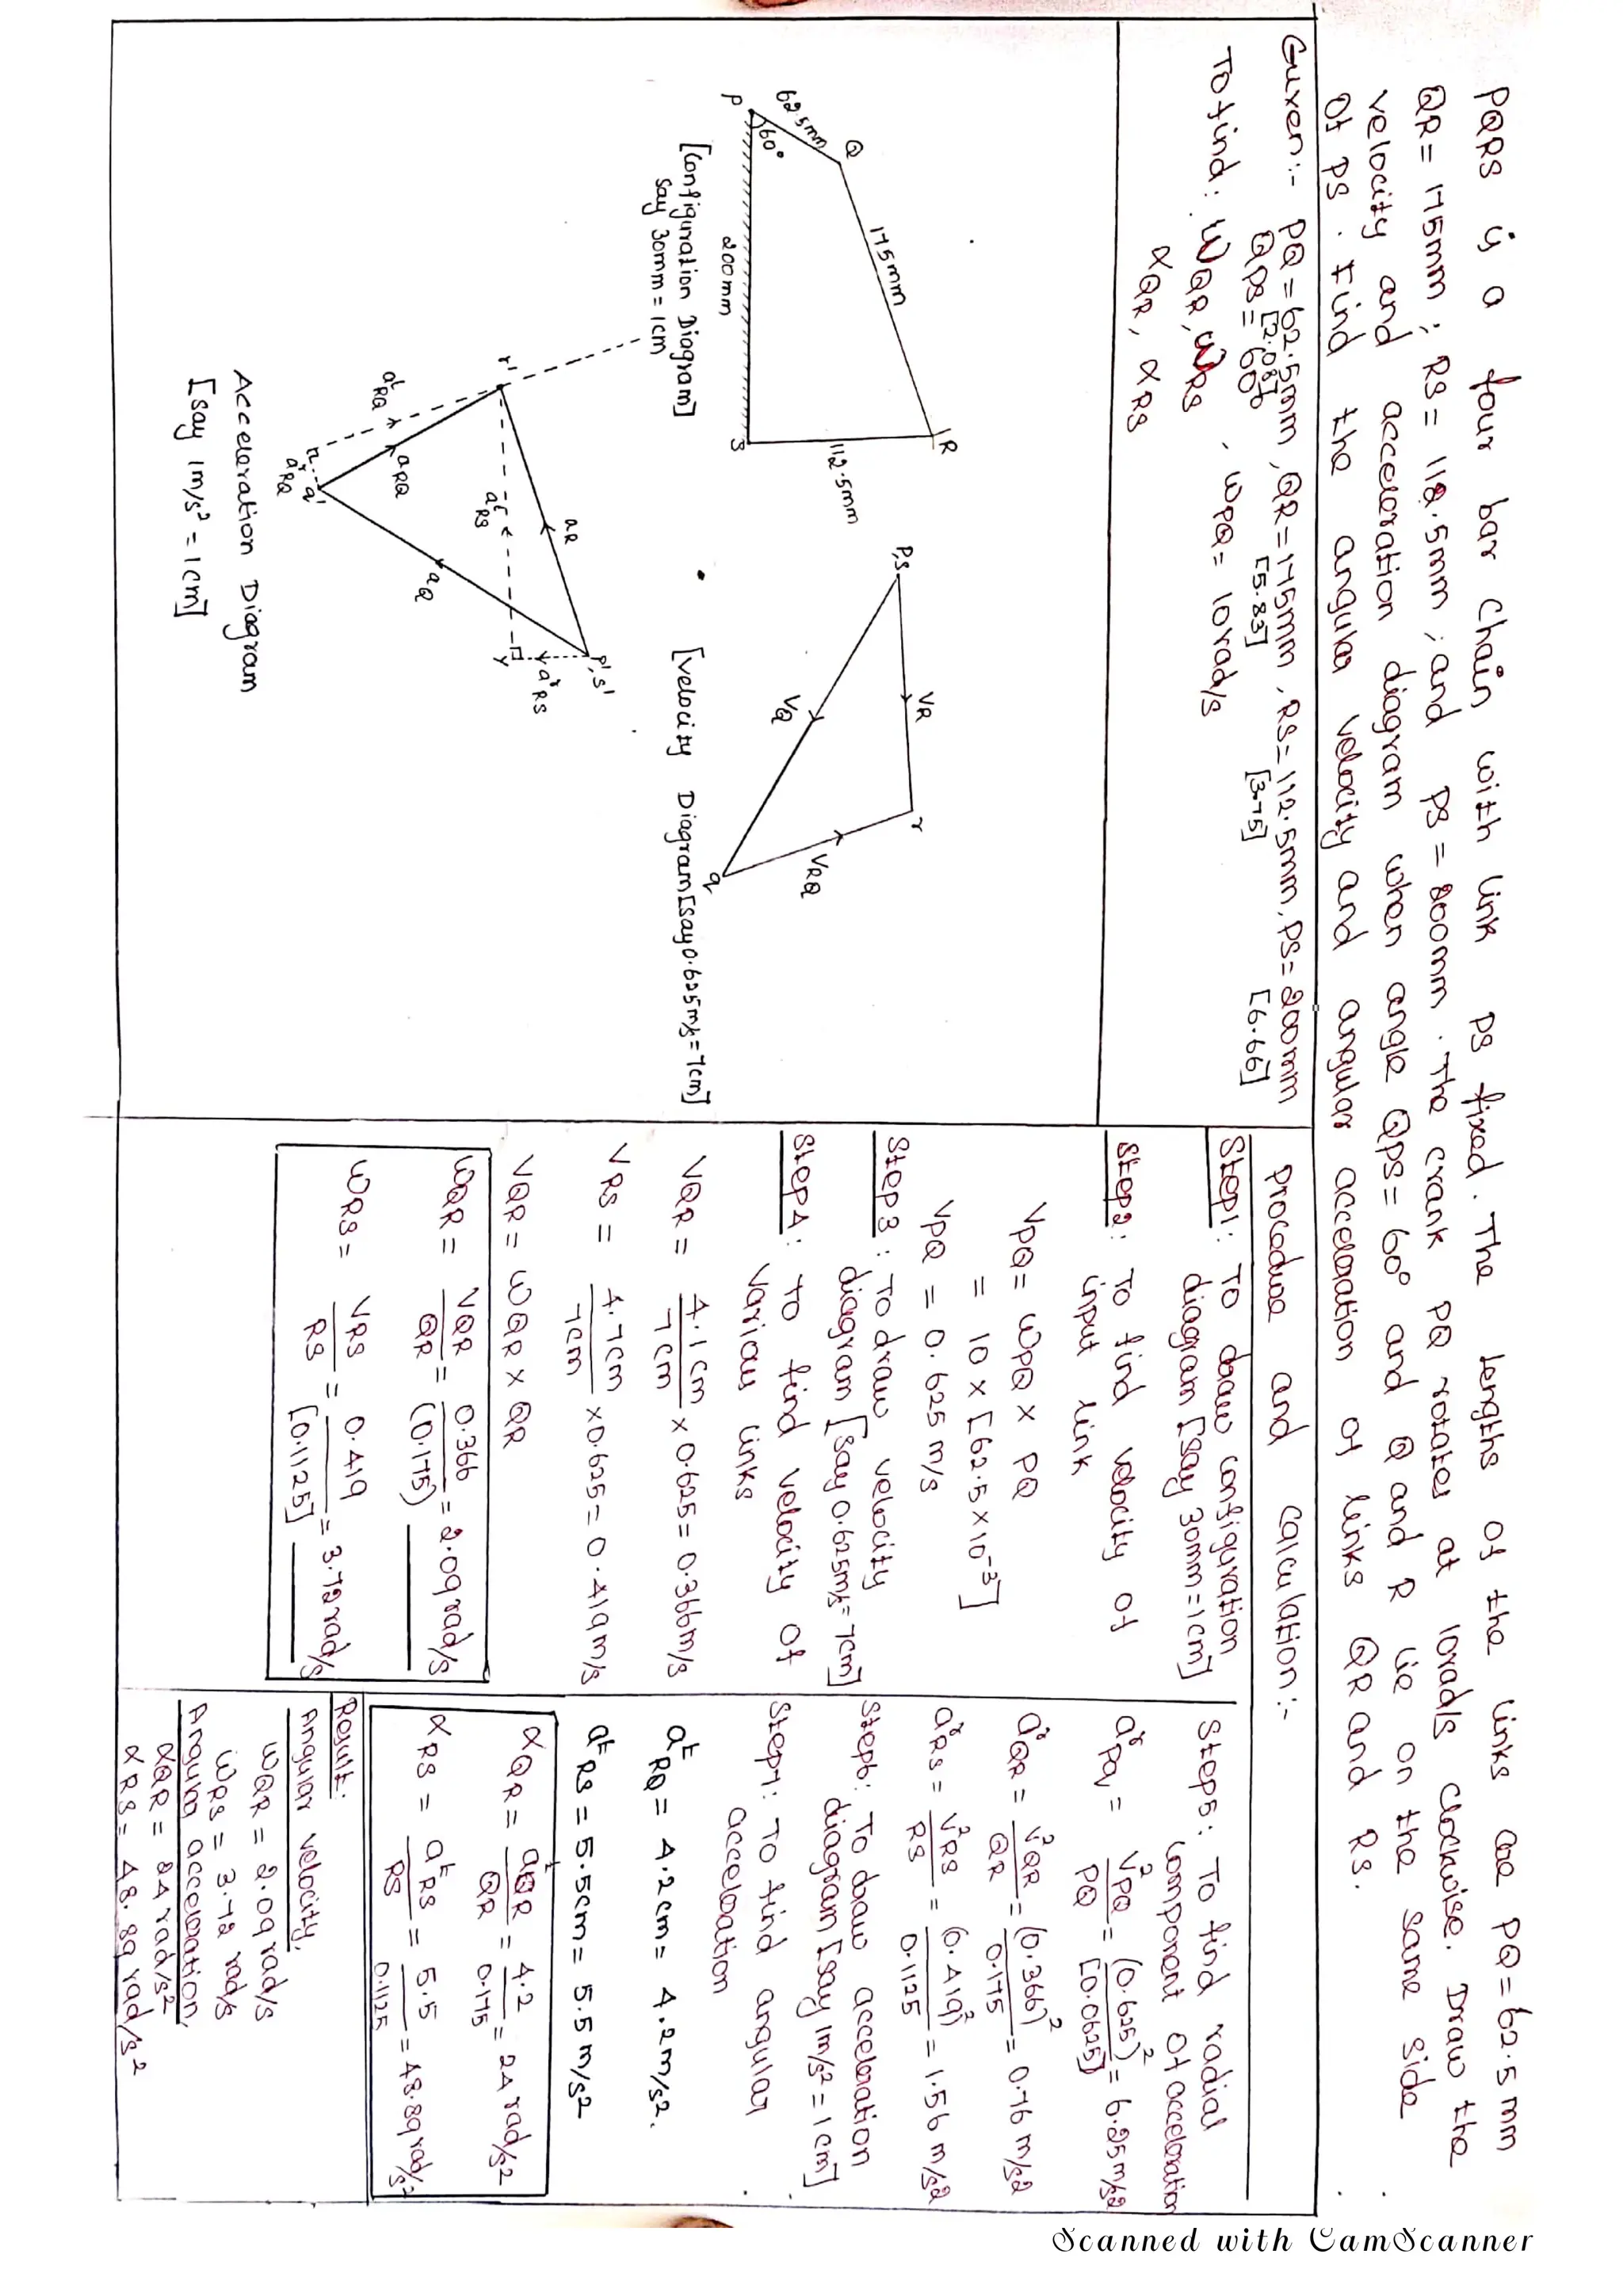 PQRS is a four bar chain with link PS fixed. The lengths of the links are PQ = 62.5 mm
QR = 175mm ; RS = 112.5mm ; and PS = 200mm. The crank PQ rotates at 10rad/s clockwise. Draw the
velocity and acceleration diagram when angle QPS = 60° and Q and R lie on the same side
of PS. Find the angular velocity and angular acceleration of links QR and RS.
Given:- PQ = 62.5mm, QR = 175mm, RS = 112.5mm, PS = 200mm
[2.08] [5.83] [3.75] [6.66]
QPS = 60°, ωPQ = 10rad/s
To find : ωQR, ωRS
αQR, αRS
Q
62.5mm
175mm
R
P
60°
112.5mm
200mm
S
[Configuration Diagram]
say 30mm = 1cm
P,S
VR
r
VQ
VRQ
q
[Velocity Diagram [say 0.625m/s = 7cm]
P',S'
aʳRS
y
aR
aᵗRS
r'
aQ
aRQ
aᵗRQ
x
aʳRQ
q'
Acceleration Diagram
[say 1m/s² = 1cm]
Procedure and calculation:-
Step1: To draw configuration
diagram [say 30mm = 1cm]
Step2: To find velocity of
input link
VPQ = ωPQ × PQ
= 10 × [62.5×10⁻³]
VPQ = 0.625 m/s
Step3: To draw velocity
diagram [say 0.625m/s = 7cm]
Step4: To find velocity of
various links
VQR = 4.1cm/7cm × 0.625 = 0.366m/s
VRS = 4.7cm/7cm × 0.625 = 0.419m/s
VQR = ωQR × QR
ωQR = VQR/QR = 0.366/(0.175) = 2.09rad/s
ωRS = VRS/RS = 0.419/[0.1125] = 3.72rad/s
Step5: To find radial
component of acceleration
aʳPQ = V²PQ/PQ = (0.625)²/[0.0625] = 6.25m/s²
aʳQR = V²QR/QR = (0.366)²/0.175 = 0.76 m/s²
aʳRS = V²RS/RS = (0.419)²/0.1125 = 1.56 m/s²
Step6: To draw acceleration
diagram [say 1m/s² = 1cm]
Step7: To find angular
acceleration
aᵗRQ = 4.2cm = 4.2m/s².
aᵗRS = 5.5cm = 5.5m/s²
αQR = aᵗQR/QR = 4.2/0.175 = 24 rad/s²
αRS = aᵗRS/RS = 5.5/0.1125 = 48.89rad/s²
Result:
Angular velocity,
ωQR = 2.09 rad/s
ωRS = 3.72 rad/s
Angular acceleration,
αQR = 24 rad/s²
αRS = 48.89 rad/s²
Scanned with CamScanner